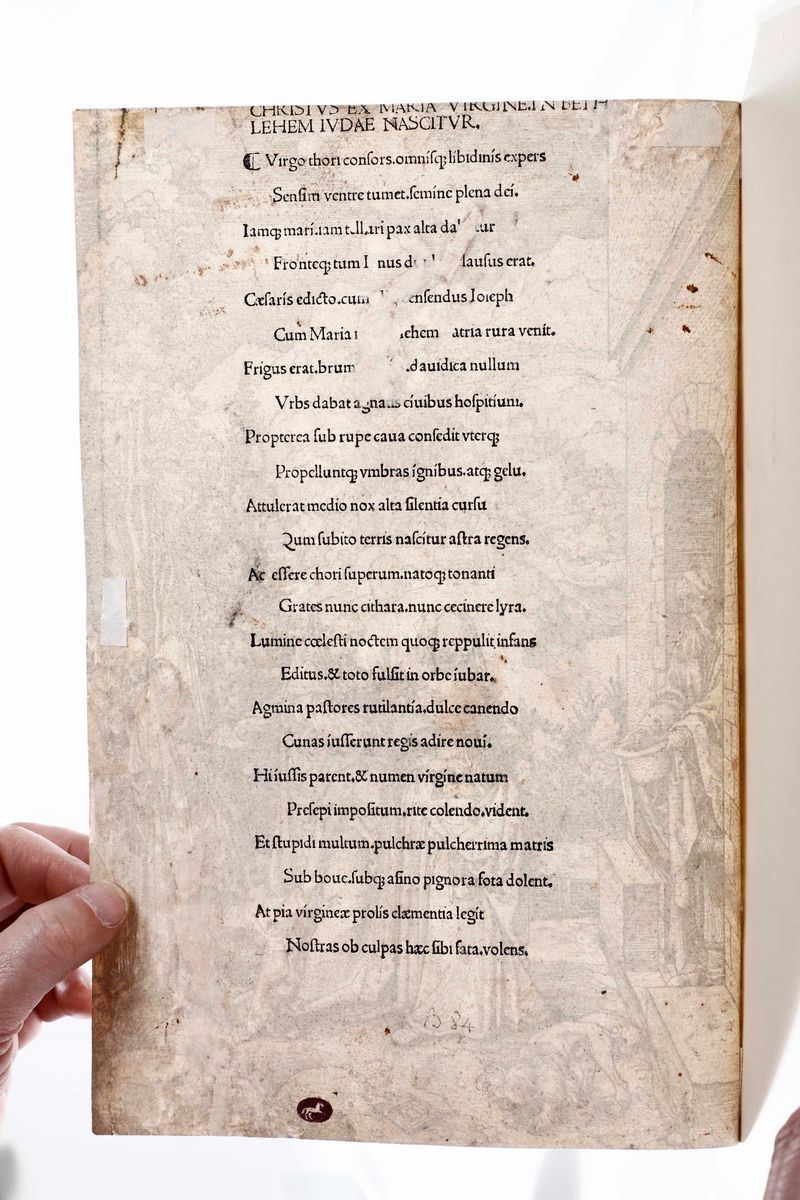 CHRISTVS EX MARIA VIRGINE.IN BETH
LEHEM IVDAE NASCITVR.
Virgo thori conſors.omniſq; libidinis expers
Senſim ventre tumet.ſemine plena dei.
Iamq; mari.iam pax alta
Fronteq; tum erat.
Cæſaris edicto.cum Ioſeph
Cum Maria rura venit.
Frigus erat. auidica nullum
Vrbs dabat ciuibus hoſpitium.
Propterea ſub rupe caua conſedit vterq;
Propelluntq; vmbras ignibus.atq; gelu.
Attulerat medio nox alta ſilentia curſu
Qum ſubito terris naſcitur aſtra regens.
Ac eſſere chori ſuperum.natoq; tonanti
Grates nunc cithara.nunc cecinere lyra.
Lumine cœleſti noctem quoq; reppulit infans
Editus.& toto fulſit in orbe iubar.
Agmina paſtores rutilantia.dulce canendo
Cunas iuſſerunt regis adire noui.
Hi iuſſis parent.& numen virgine natum
Preſepi impoſitum.rite colendo.vident.
Et ſtupidi multum.pulchræ pulcherrima matris
Sub boue.ſubq; aſino pignora fota dolent.
At pia virgineæ prolis clæmentia legit
Noſtras ob culpas hæc ſibi fata.volens.
B 84